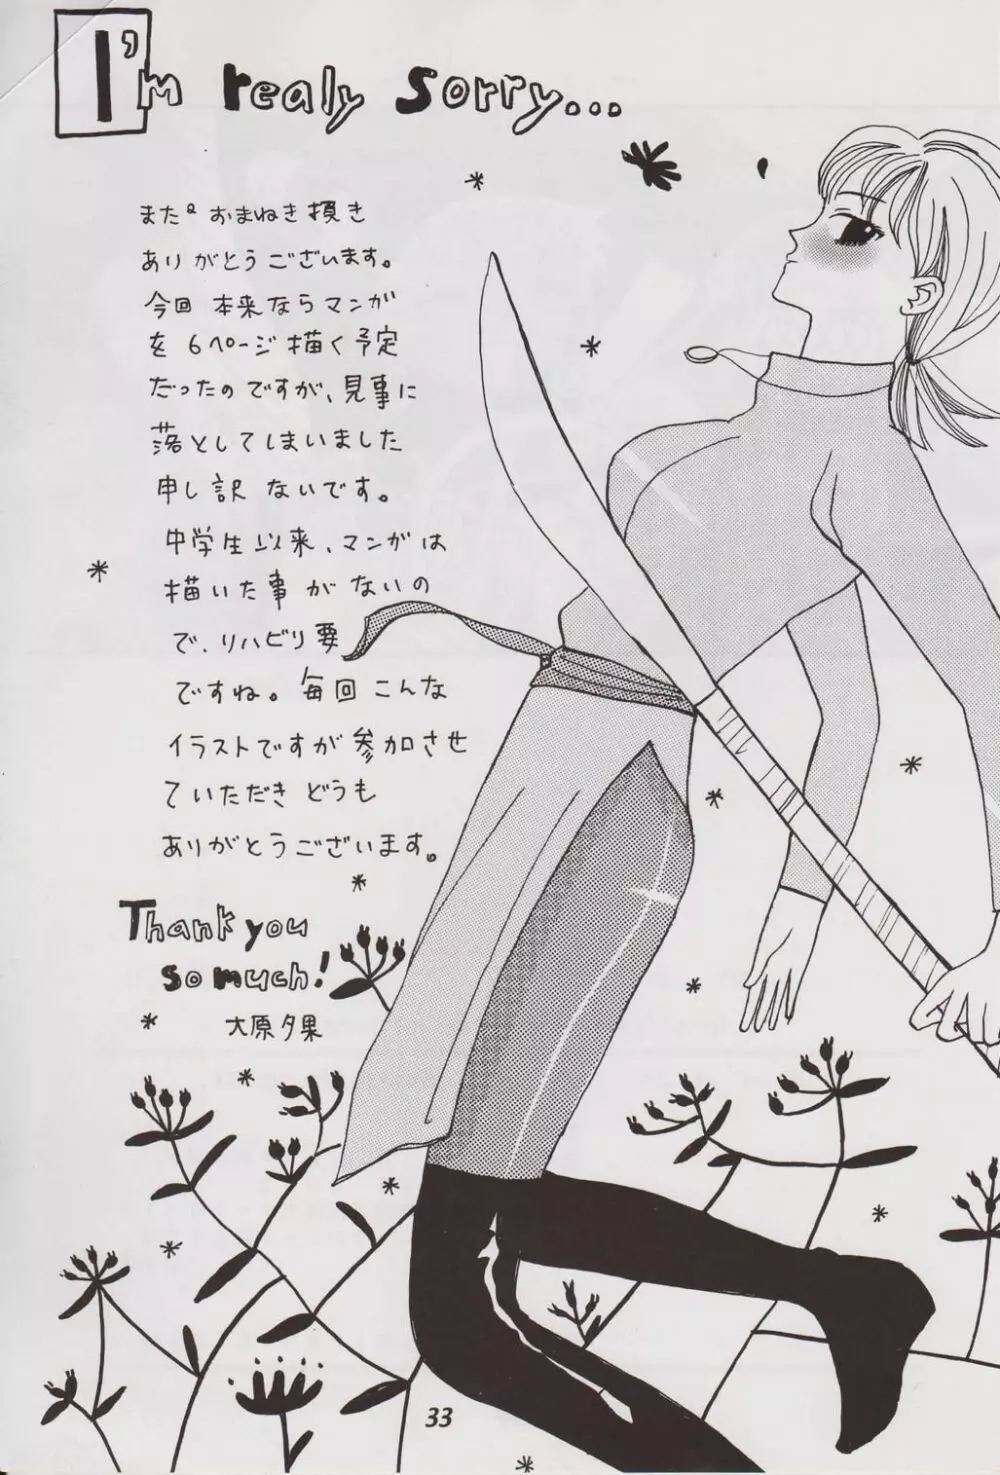 I'm realy sorry...
またまたおまねき頂き
ありがとうございます。
今回 本来ならマンガ
を 6ページ描く予定
だったのですが、見事に
落としてしまいました
申し訳 ないです。
中学生以来、マンガは
描いた事が ないの
で、リハビリ要
ですね。毎回 こんな
イラストですが参加させ
ていただき どうも
ありがとうございます。
Thank you
so much!
大原夕果
33